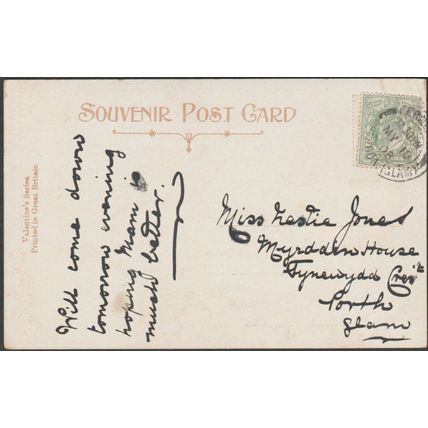 SOUVENIR POST CARD
Valentine's Series
Printed in Great Britain
Will come down
tomorrow evening
hoping Mam is
much better.
Miss Nestie Jones
Myrddin House
Tynewydd Cres
Porth
Glam